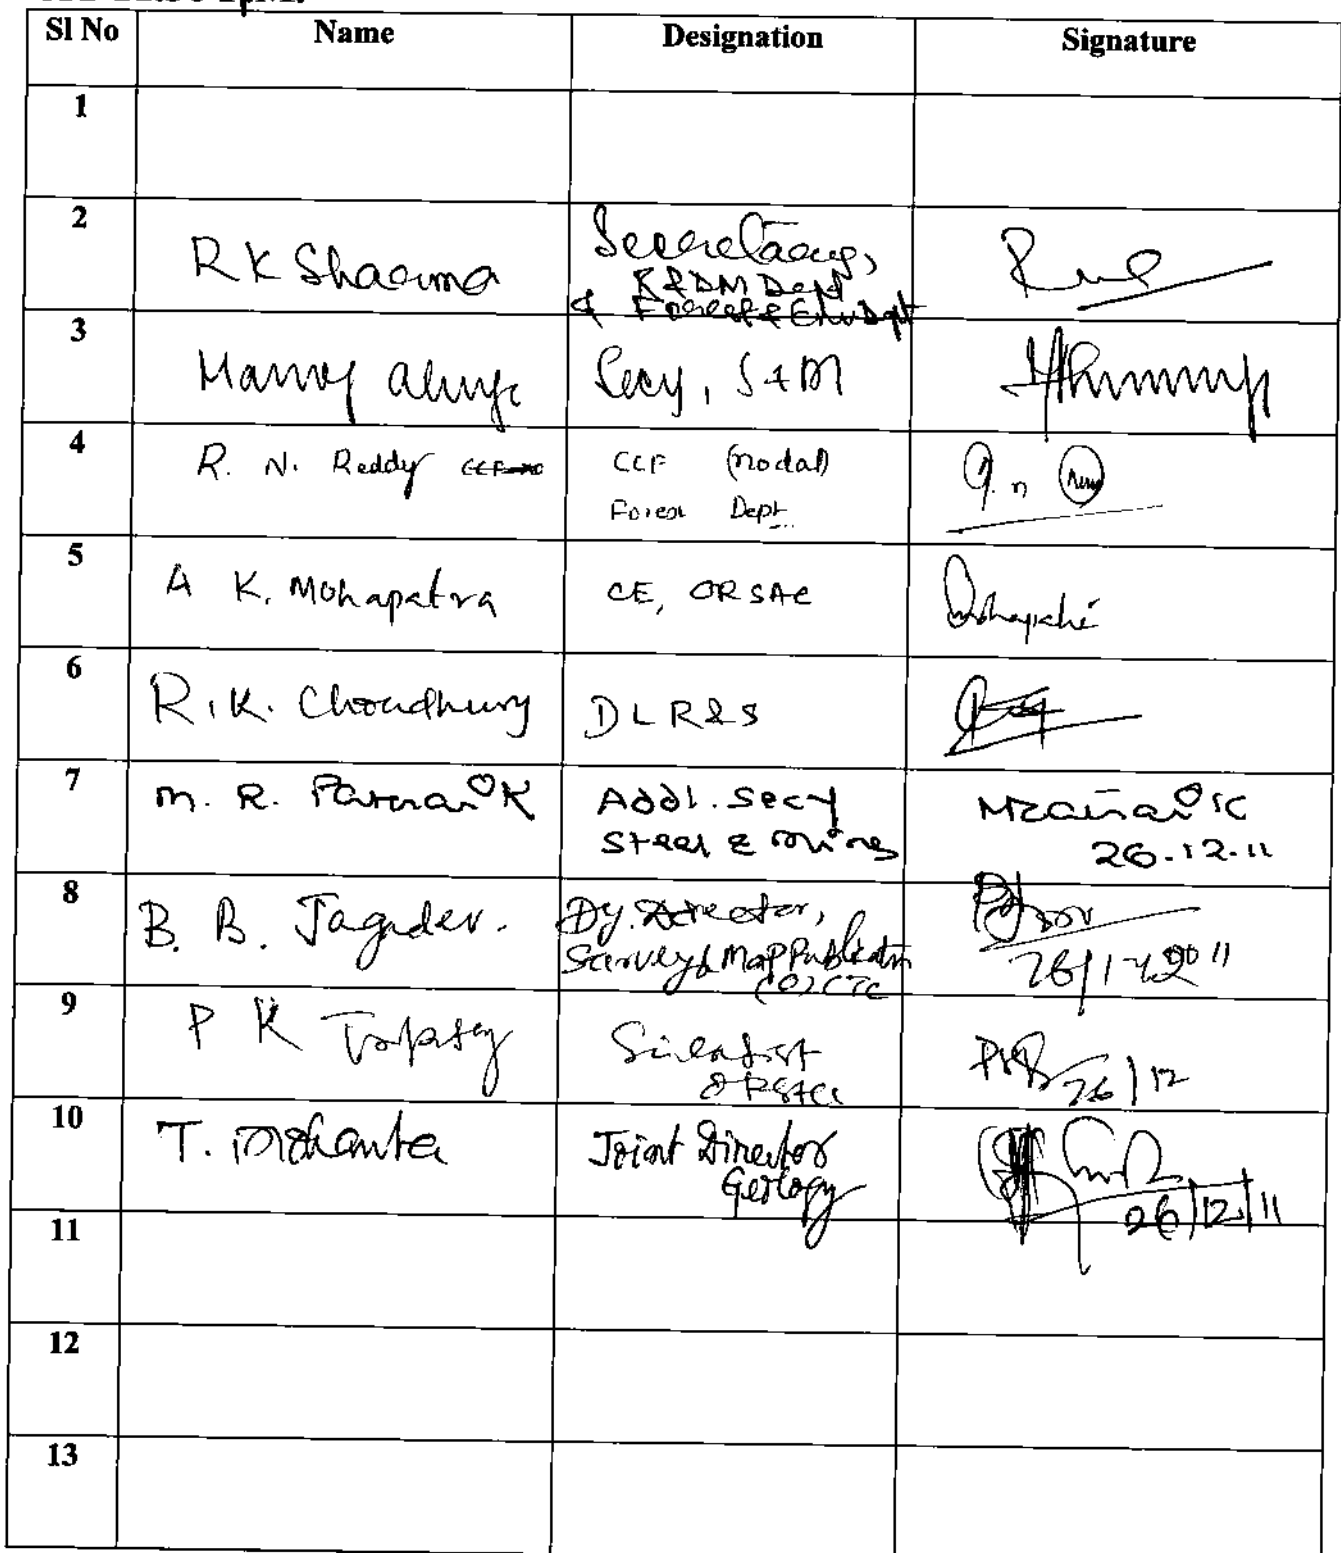 Sl No Name Designation Signature
1
2 R K Sharma Secretary,
R&DM Dept
& Forest & Env Dept
3 Manoj Ahuja Secy, S & M
4 R. N. Reddy CCF (nodal)
Forest Dept.
5 A K. Mohapatra CE, ORSAC
6 R. K. Choudhury DLR&S
7 M. R. Pattanaik Addl. Secy
Steel & Mines
26.12.11
8 B. B. Jagdev. Dy. Director,
Survey & Map Publication
(O) CTC
9 P K Scientist
ORSAC
26/12
10 T. Mohanta Joint Director
Geology
26/12/11
11
12
13